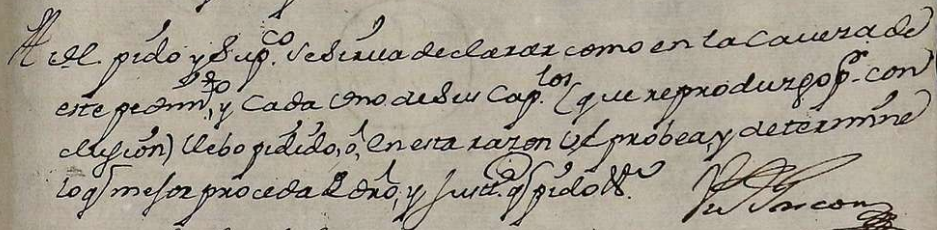 A Vd. pido y Sup.co se sirva declarar como en la Cavesa de
este pedim.to, y Cada Uno de Sus Cap.los (que reprodusgo p.r con
clusion) llebo pidido, ó, En esta razon Vd probea, y determine
lo q mejor proceda de dro, y just.a q pido &a